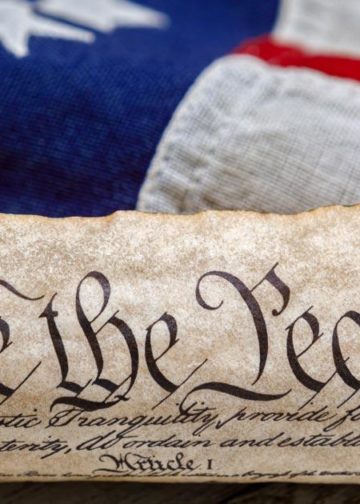 e the Peo
stic Tranquility, provide fo
terity, do ordain and establi
Article I